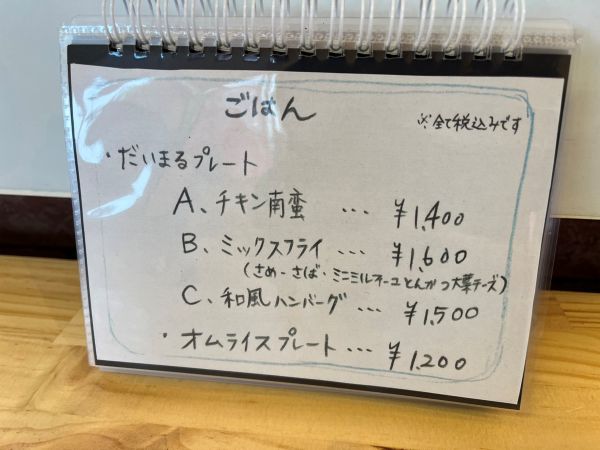 ごはん
※全て税込みです
・だいまるプレート
A、チキン南蛮 … ¥1,400
B、ミックスフライ … ¥1,600
(さめ・さば・ミニミルフィーユとんかつ大葉チーズ)
C、和風ハンバーグ … ¥1,500
・オムライスプレート … ¥1,200